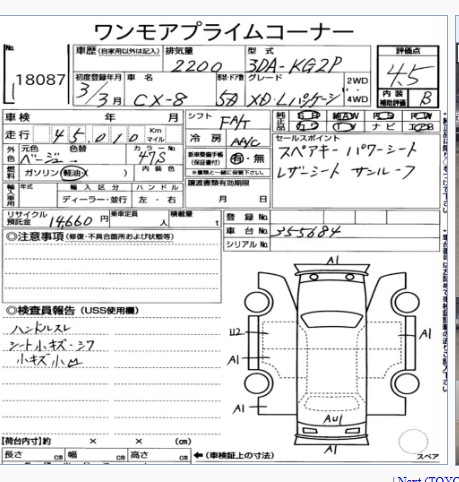 ワンモアプライムコーナー
No. 18087
車歴 (自家用以外は記入) 排気量 2200 型式 3DA-KG2P 評価点 4.5
初度登録年月 3/3月 車名 CX-8 形状・ドア数 5D グレード XD・Lパッケージ 2WD 4WD 内装補助評価 B
車検 年 月 シフト FA/T
走行 45,010 Km マイル 冷房 AAC ナビ
外色 元色 ベージュ 色替 カラーNo. 47S 新車整備手帳 (保証書付) 有・無
※書類と一緒に保管下さい。
セールスポイント
スペアキー パワーシート
レザーシート サンルーフ
燃料 ガソリン 軽油 ( ) 内装色
譲渡書類有効期限 月 日
輸入車 年式 輸入区分 ディーラー・並行 ハンドル 左・右
リサイクル預託金 14660円 乗車定員 人 積載量 t
登録No.
車台No. 355684
シリアルNo.
◎注意事項 (修復・不具合箇所および状態等)
◎検査員報告 (USS使用欄)
ハンドルスレ
シート小キズ・シワ
小キズ小凹
A1
U2
A1
A1
A1
AU1
A1
スペア
【荷台内寸】約 × × (cm)
長さ cm 幅 cm 高さ cm ←(車検証上の寸法)
| Next (TOYO